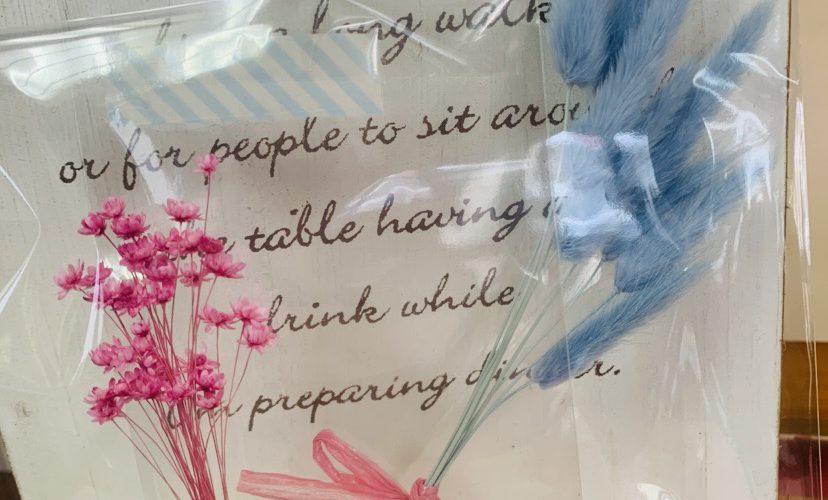 long walk
or for people to sit around
table having a
drink while
preparing dinner.